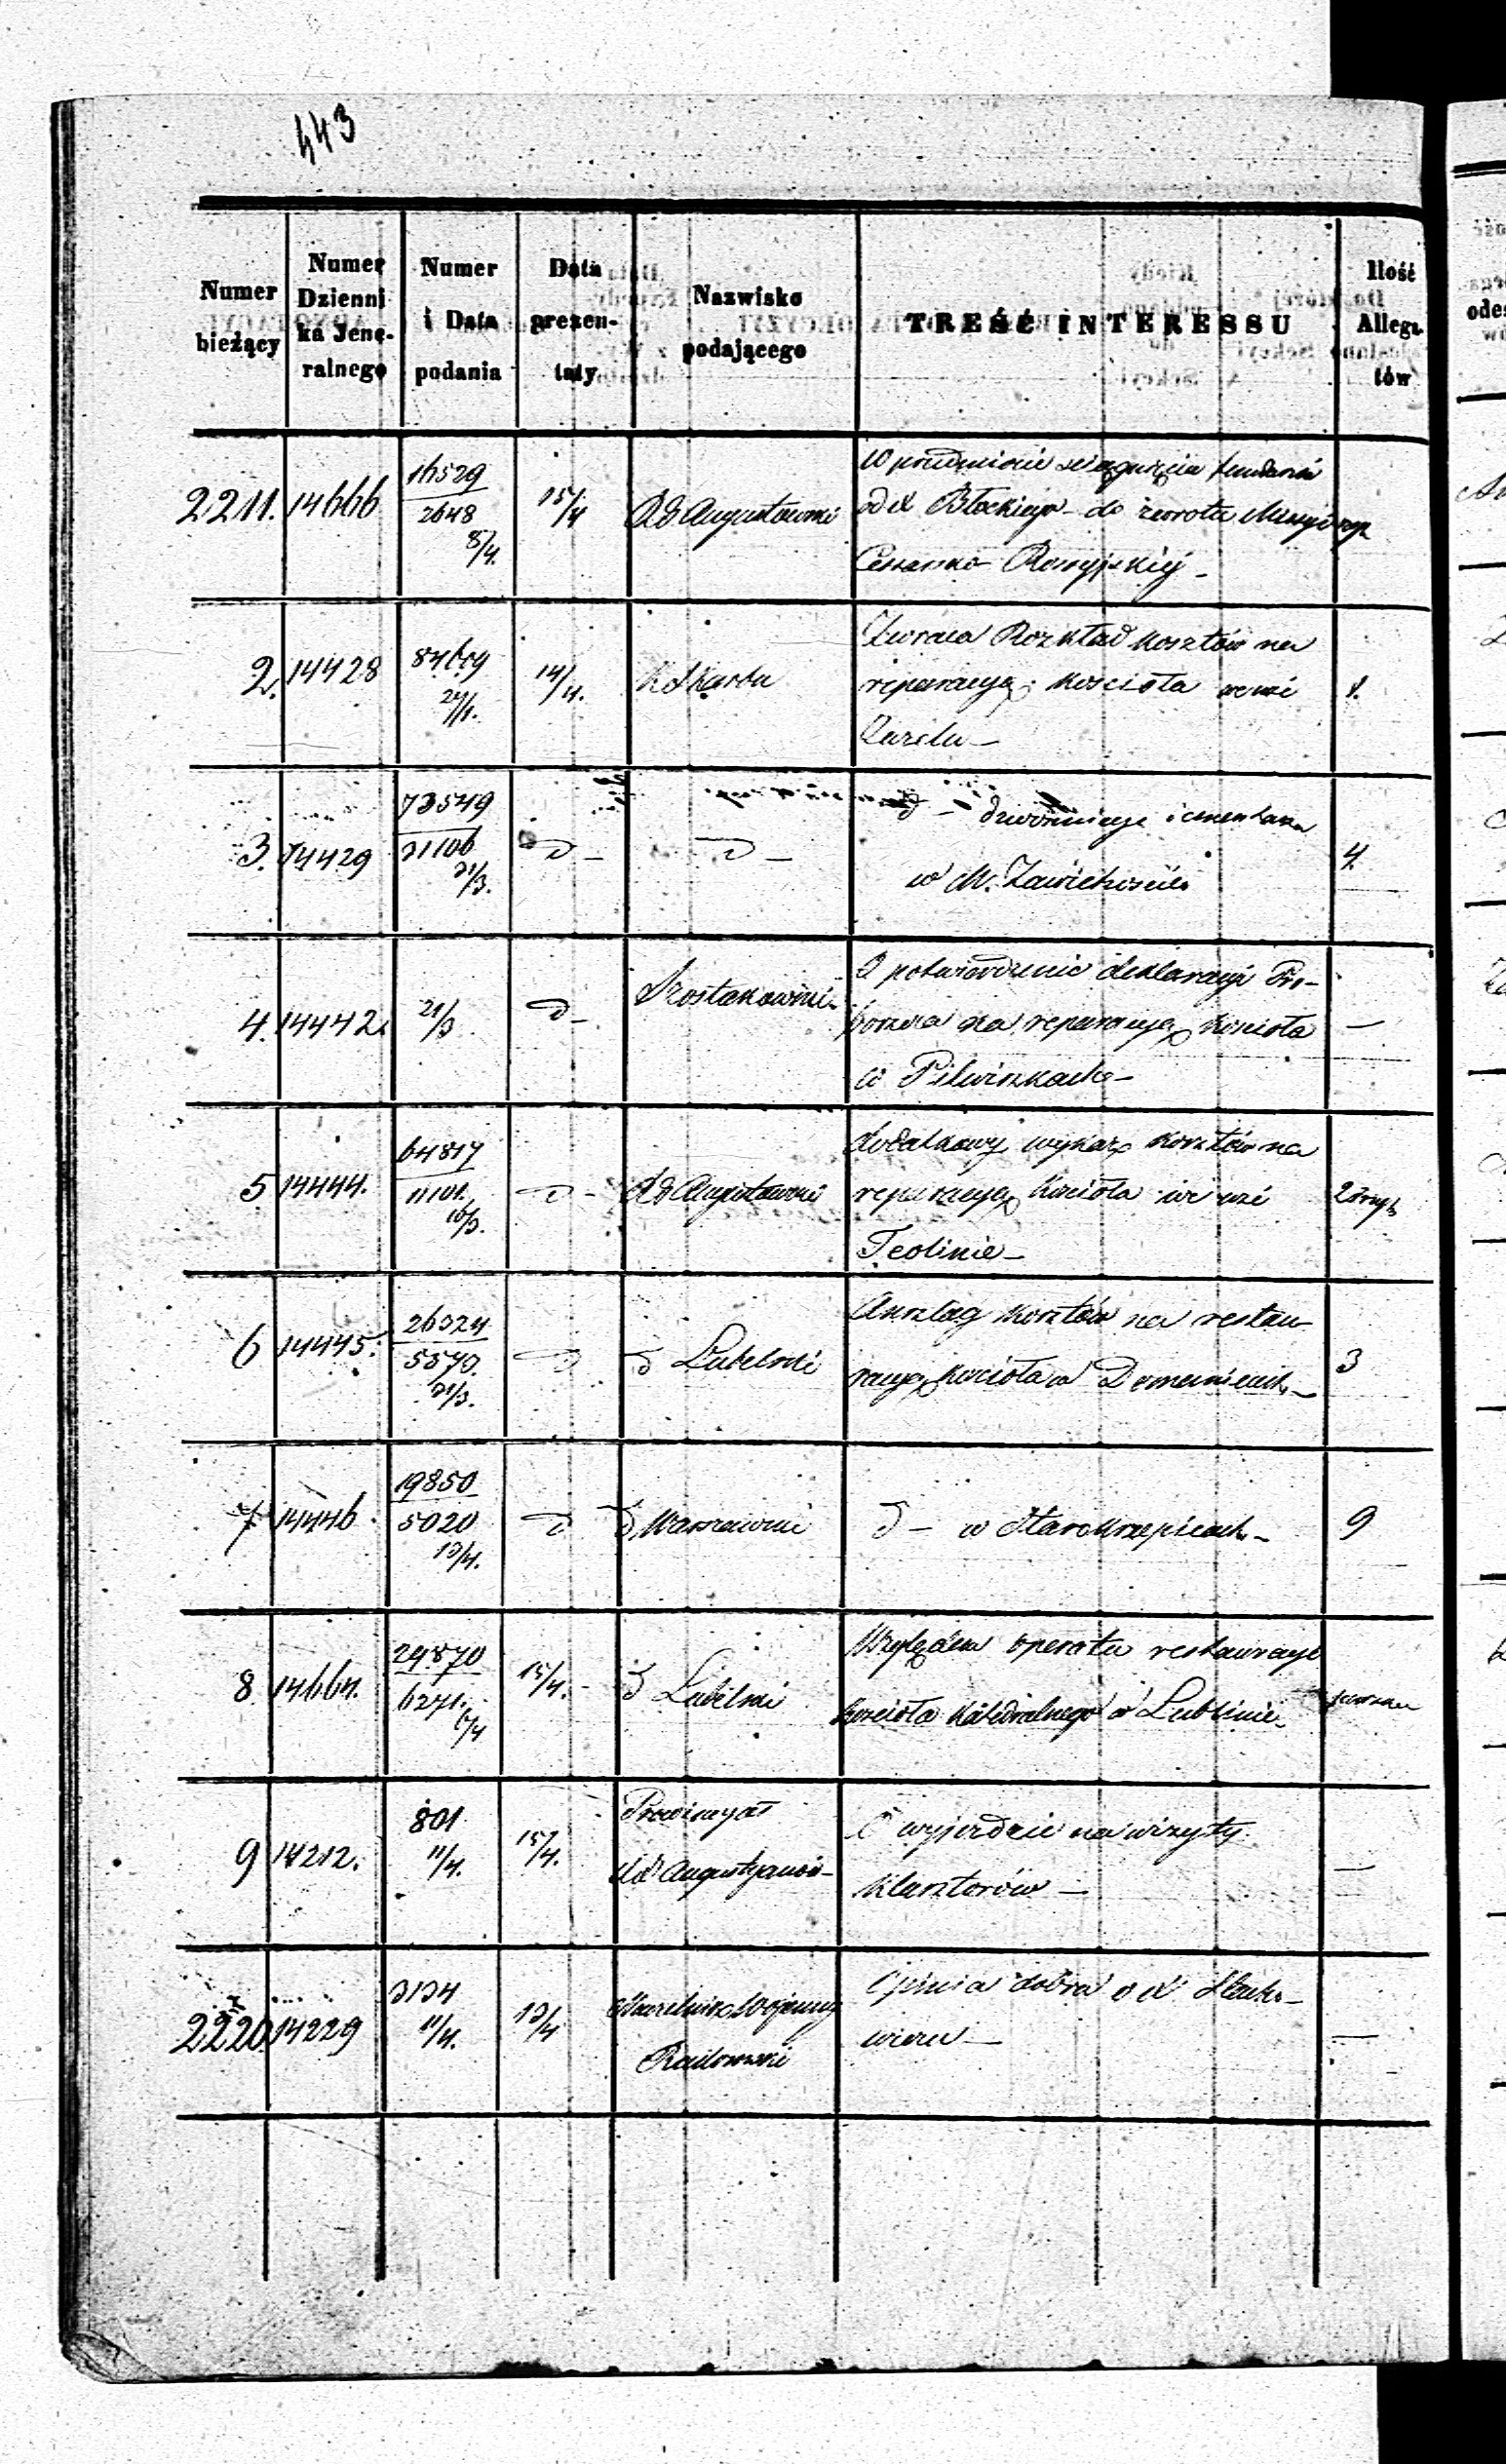 443
Numer bieżący
Numer Dziennika Jeneralnego
Numer i Data podania
Data prezentaty
Nazwisko podającego
TREŚĆ INTERESSU
Ilość Allegatów
2211. 14666 16529 / 2648 8/4. 15/4 Rd Augustowski
O
od X Błockiego do zwrotu
Rossyjskiéj
2. 14428 84609 24/1. 14/4. K. Skarbu
Zwraca Rozkład kosztów na
reparacyą kościoła we wsi
1.
3. 14429 73549 / 31106 31/3. D - D -
D - dzwonnicy i cmentarza
w M. Zawichoście
4.
4. 14442. 21/3 D - Szostakowski
O potwierdzenie deklaracyi Pro-
boszcza na reparacyą kościoła
w Pilwiszkach -
—
5 14444. 64817 / 11101. 16/3. D - Rd Augustowski
Dodatkowy wykaz kosztów na
reparacyą kościoła we wsi
Teolinie -
6 14445. 26324 / 5873. 31/3. D D Lubelski
Anszlag kosztów na restau-
racyą kościoła w
3
7 14446 19850 / 5020 13/4. D D Warszawski
D - w Starokrzepicach -
9
8 14664. 29870 / 6271. 6/4 15/4. D Lubelski
Względem operatu restauracyi
kościoła Katedralnego w Lublinie
9 14212. 801 11/4. 15/4. Prowincyał
XX Augustyanów -
O wyjeździe na wizyty
Klasztorów -
—
2220 14229 3134 11/4. 13/4 Naczelnik Wojenny
Radomski
Opinia dobra o X
—